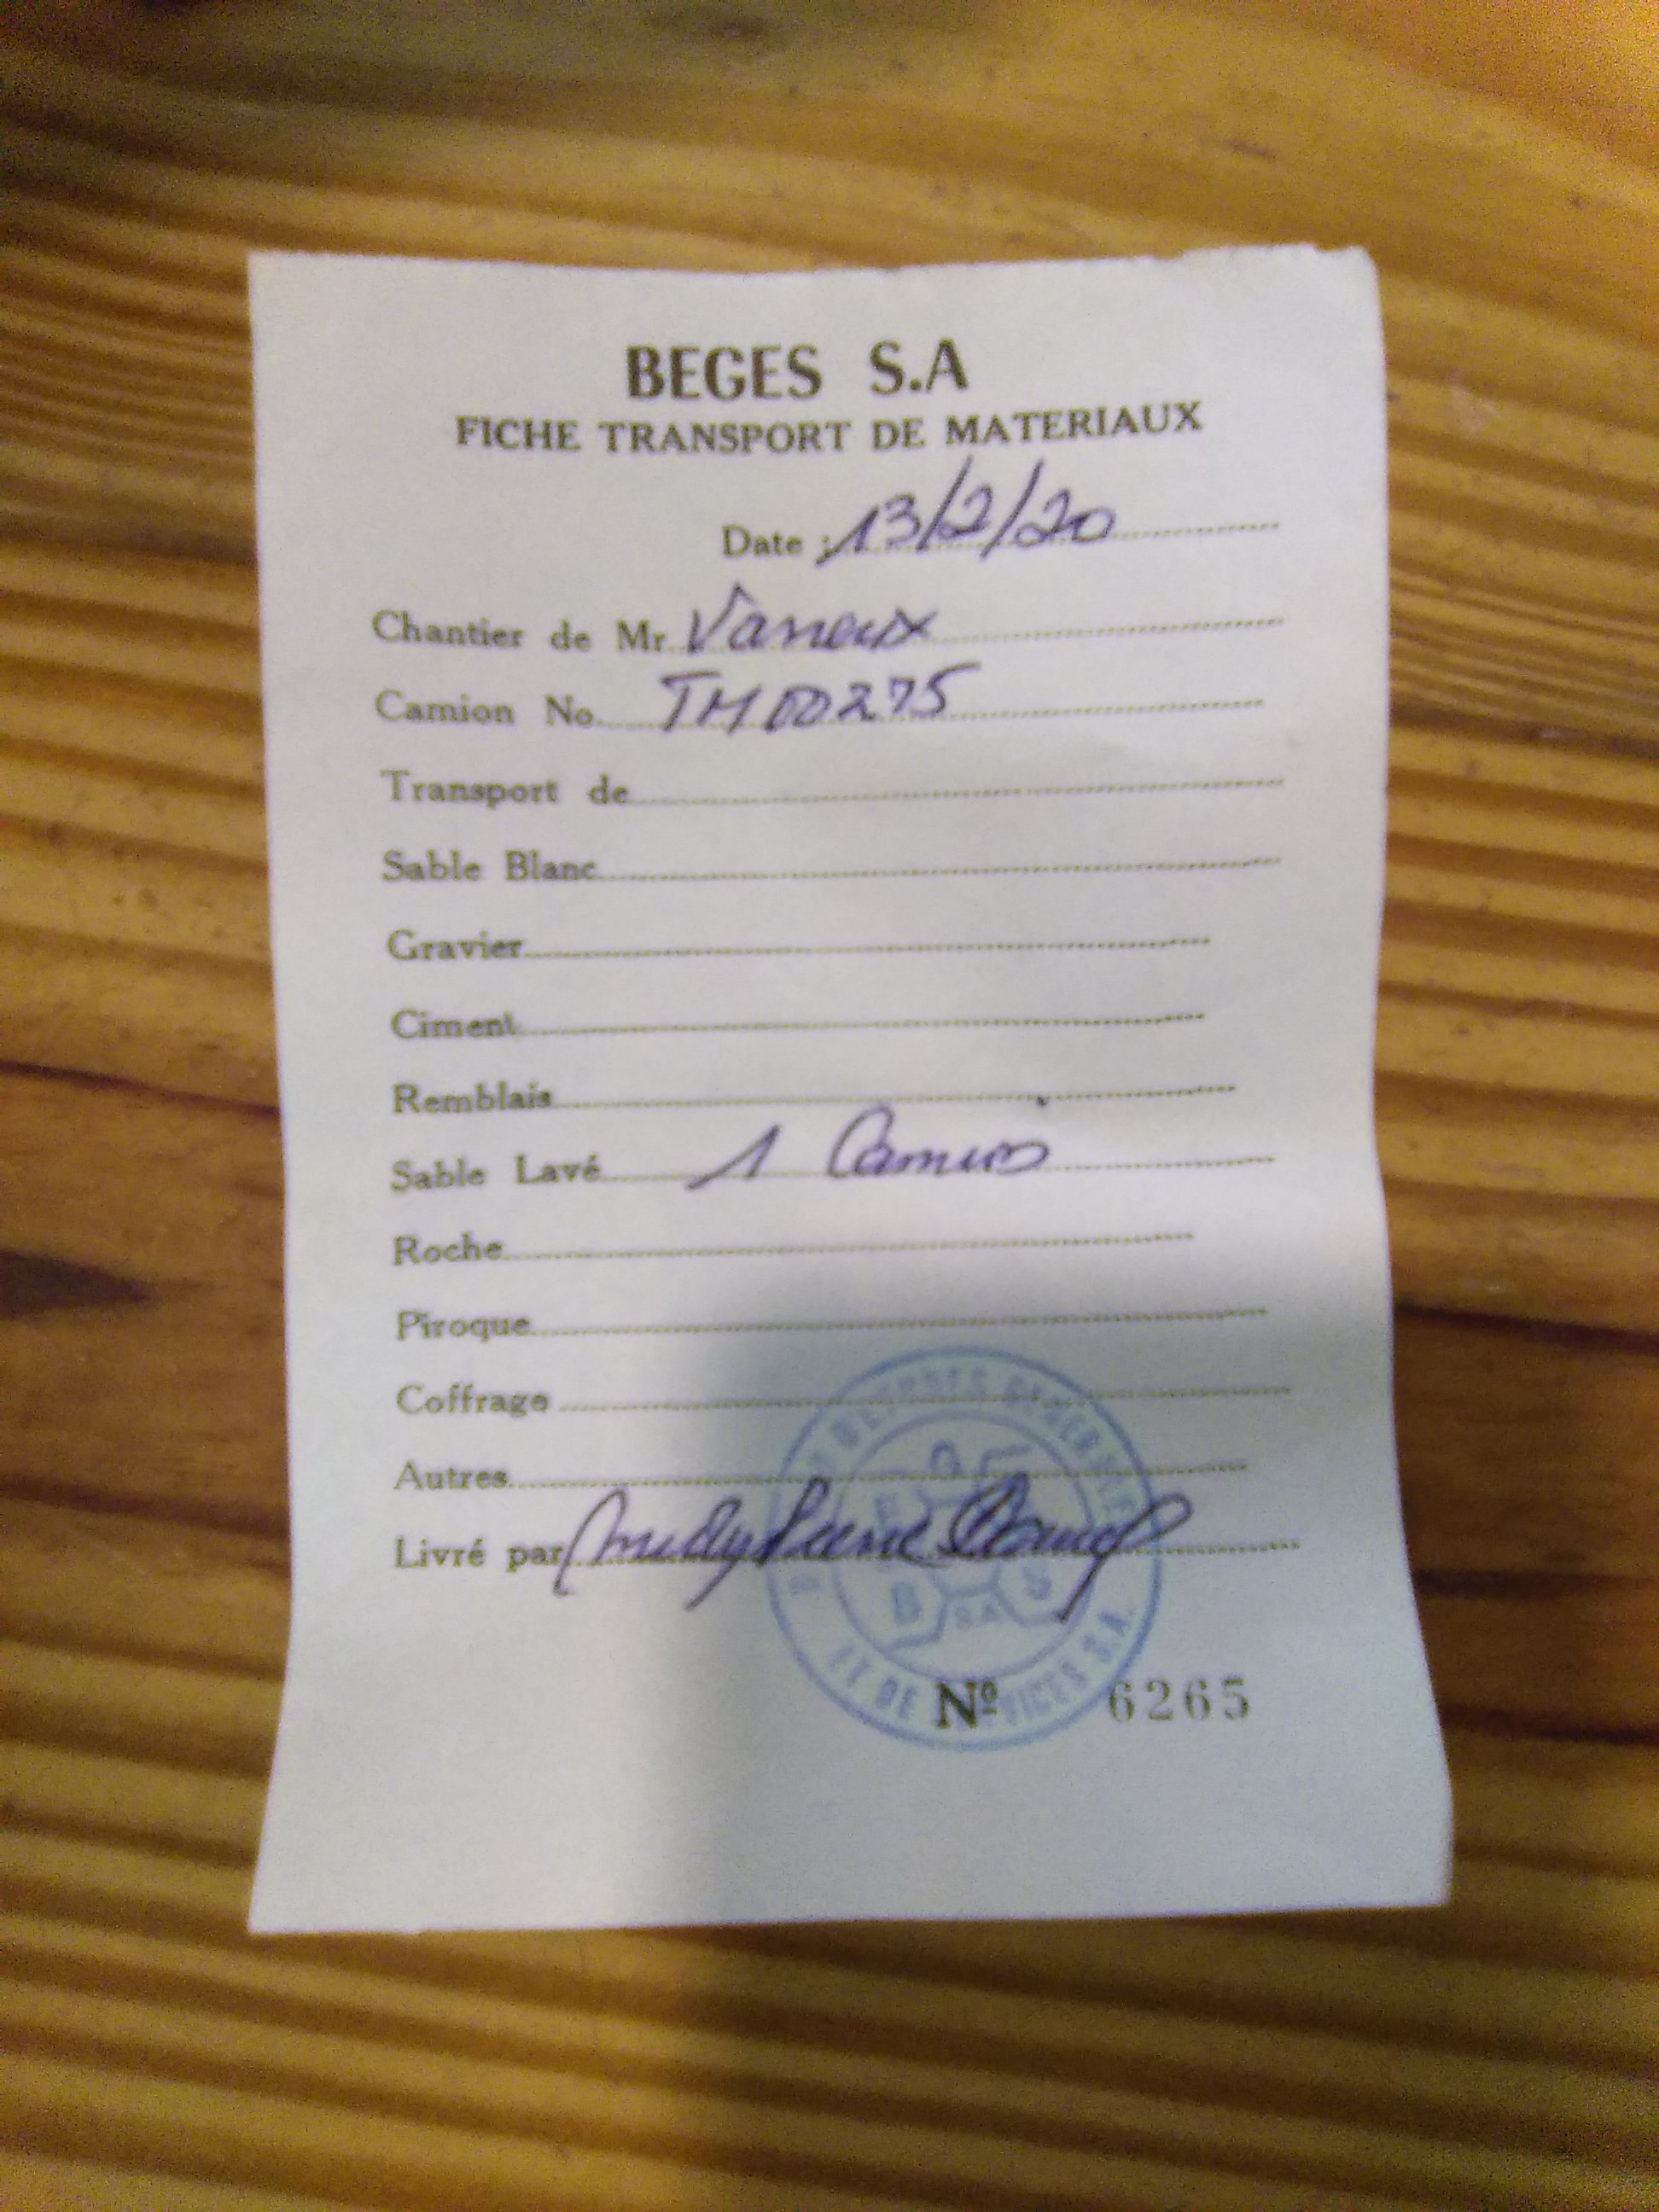 BEGES S.A
FICHE TRANSPORT DE MATERIAUX
Date : 13/2/20
Chantier de Mr. Varieux
Camion No. TM00275
Transport de
Sable Blanc
Gravier
Ciment
Remblais
Sable Lavé 1 Camion
Roche
Piroque
Coffrage
Autres
Livré par
DEPOTS GENERAUX
B S
S.A
ET DE SERVICES S.A.
Nº 6265